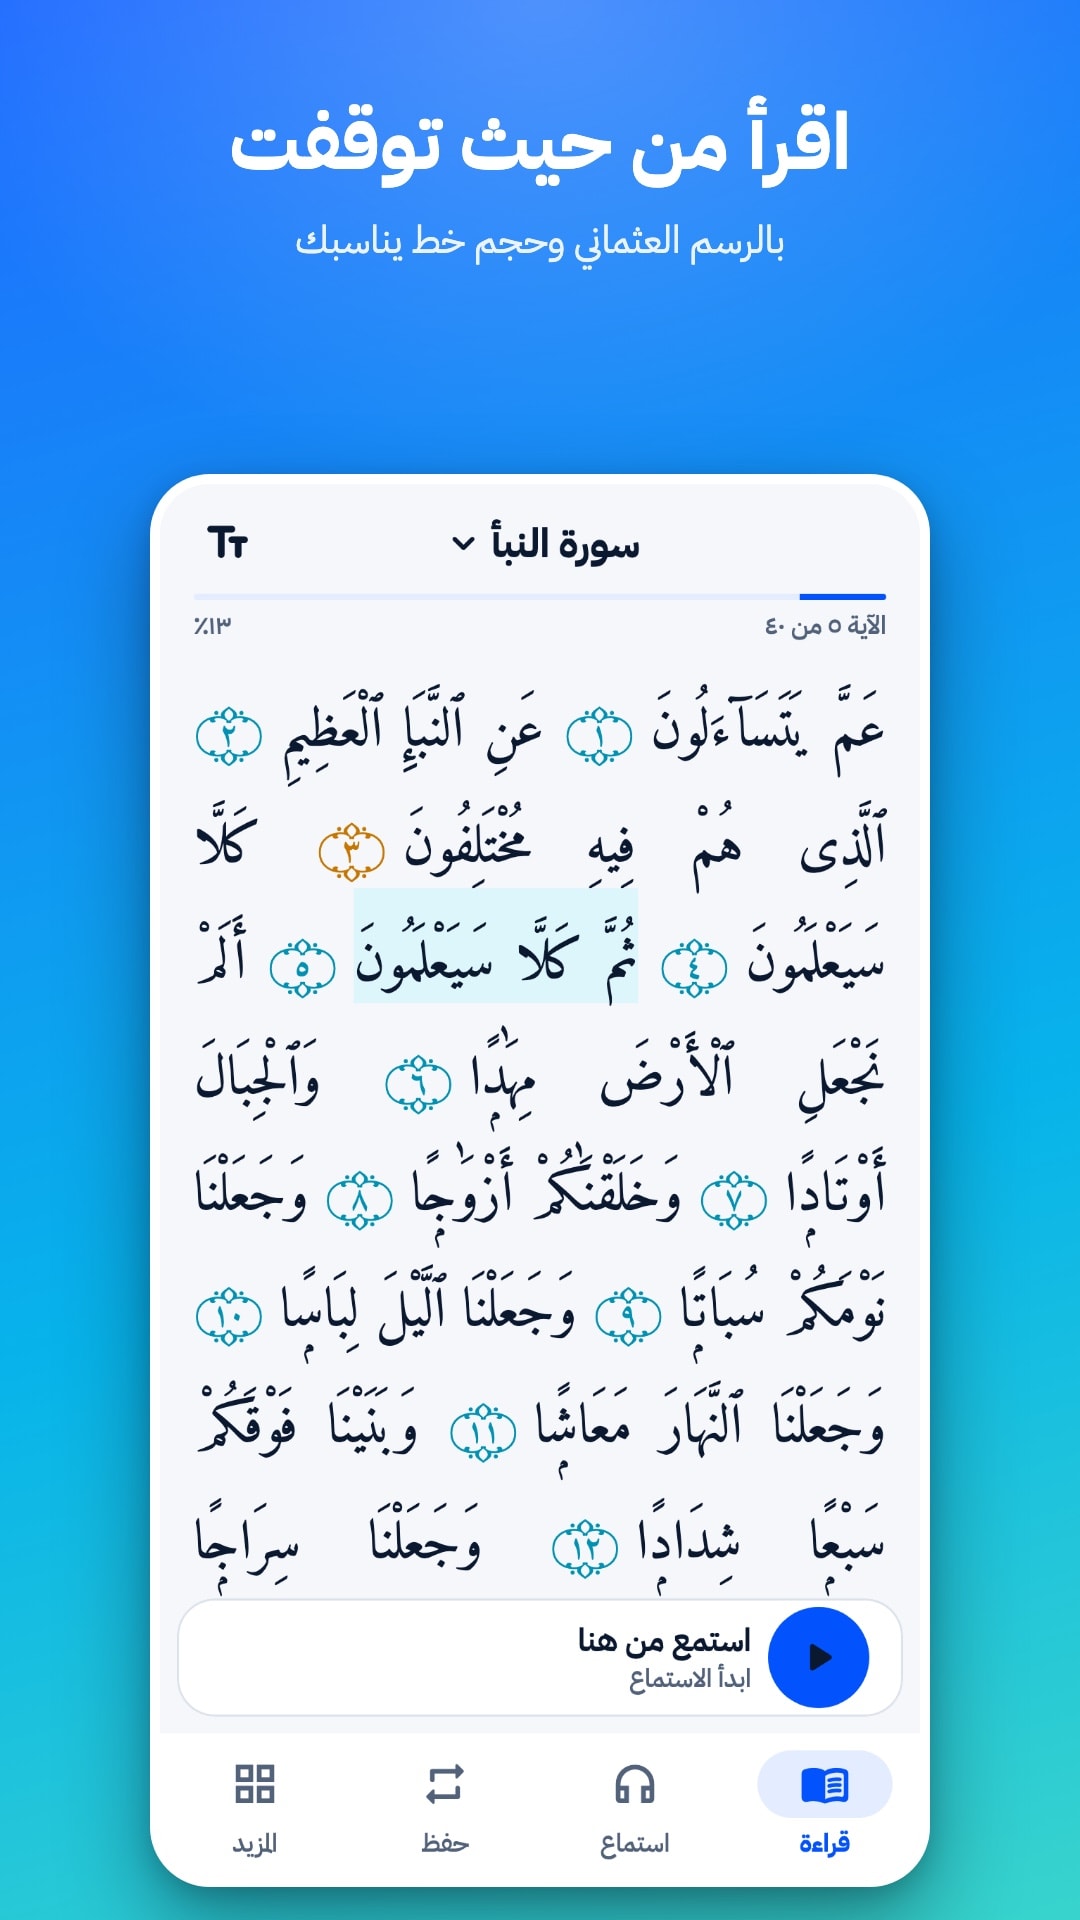 اقرأ من حيث توقفت
بالرسم العثماني وحجم خط يناسبك
سورة النبأ
الآية ٥ من ٤٠
١٣٪
عَمَّ يَتَسَآءَلُونَ ١ عَنِ ٱلنَّبَإِ ٱلْعَظِيمِ ٢
ٱلَّذِى هُمْ فِيهِ مُخْتَلِفُونَ ٣ كَلَّا
سَيَعْلَمُونَ ٤ ثُمَّ كَلَّا سَيَعْلَمُونَ ٥ أَلَمْ
نَجْعَلِ ٱلْأَرْضَ مِهَٰدًۭا ٦ وَٱلْجِبَالَ
أَوْتَادًۭا ٧ وَخَلَقْنَٰكُمْ أَزْوَٰجًۭا ٨ وَجَعَلْنَا
نَوْمَكُمْ سُبَاتًۭا ٩ وَجَعَلْنَا ٱلَّيْلَ لِبَاسًۭا ١٠
وَجَعَلْنَا ٱلنَّهَارَ مَعَاشًۭا ١١ وَبَنَيْنَا فَوْقَكُمْ
سَبْعًۭا شِدَادًۭا ١٢ وَجَعَلْنَا سِرَاجًۭا
استمع من هنا
ابدأ الاستماع
قراءة
استماع
حفظ
المزيد